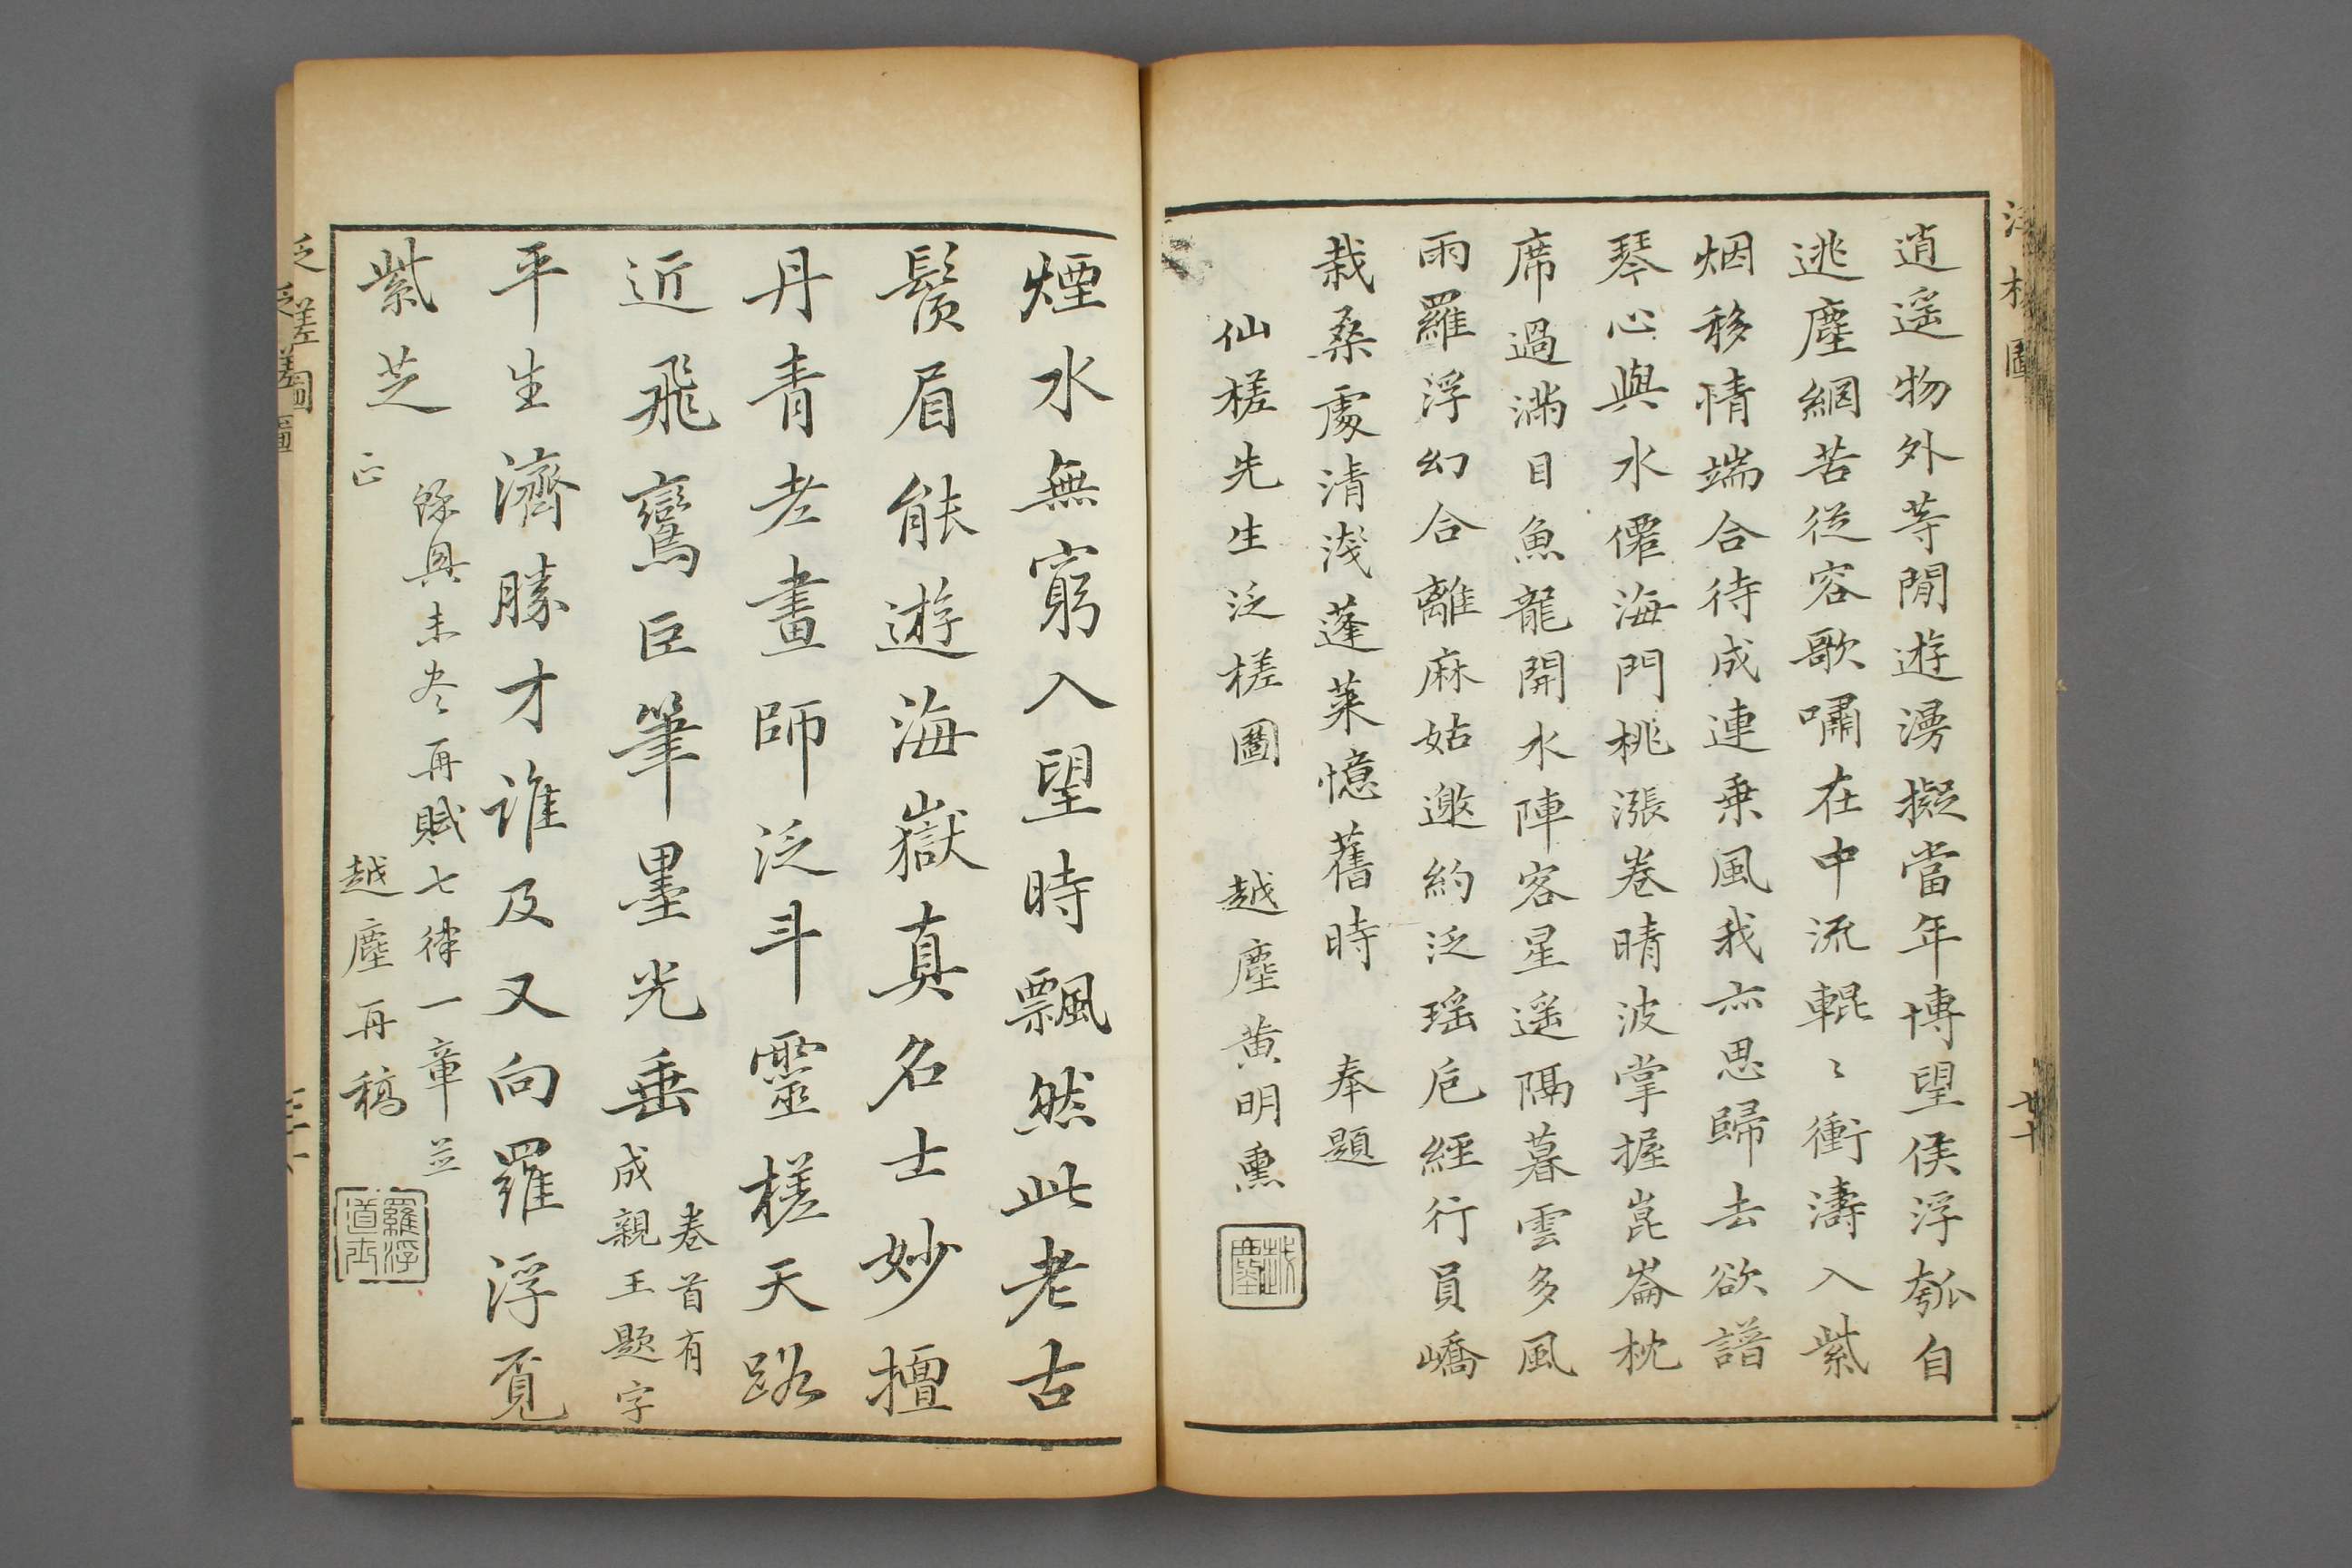 逍遥物外等閒遊湧擬當年博望侯浮瓠自
逃塵網苦從容歌嘯在中流輥〻衝濤入紫
烟移情端合待成連乗風我亦思歸去欲譜
琴心與水僊海門桃漲卷晴波掌握崑崙枕
席過滿目魚龍開水陣客星遥隔暮雲多風
雨羅浮幻合離麻姑邀約泛瑶卮經行員嶠
栽桑處清淺蓬萊憶舊時 奉題
仙槎先生泛槎圖 越塵黄明熏
越塵
煙水無窮入望時飄然此老古
鬚眉能遊海嶽真名士妙擅
丹青老畫師泛斗靈槎天路
近飛鸞臣筆墨光垂卷首有
成親王題字
平生濟勝才誰及又向羅浮覓
紫芝 餘興未尽再賦七律一章並
正 越塵再稿
羅浮
道士